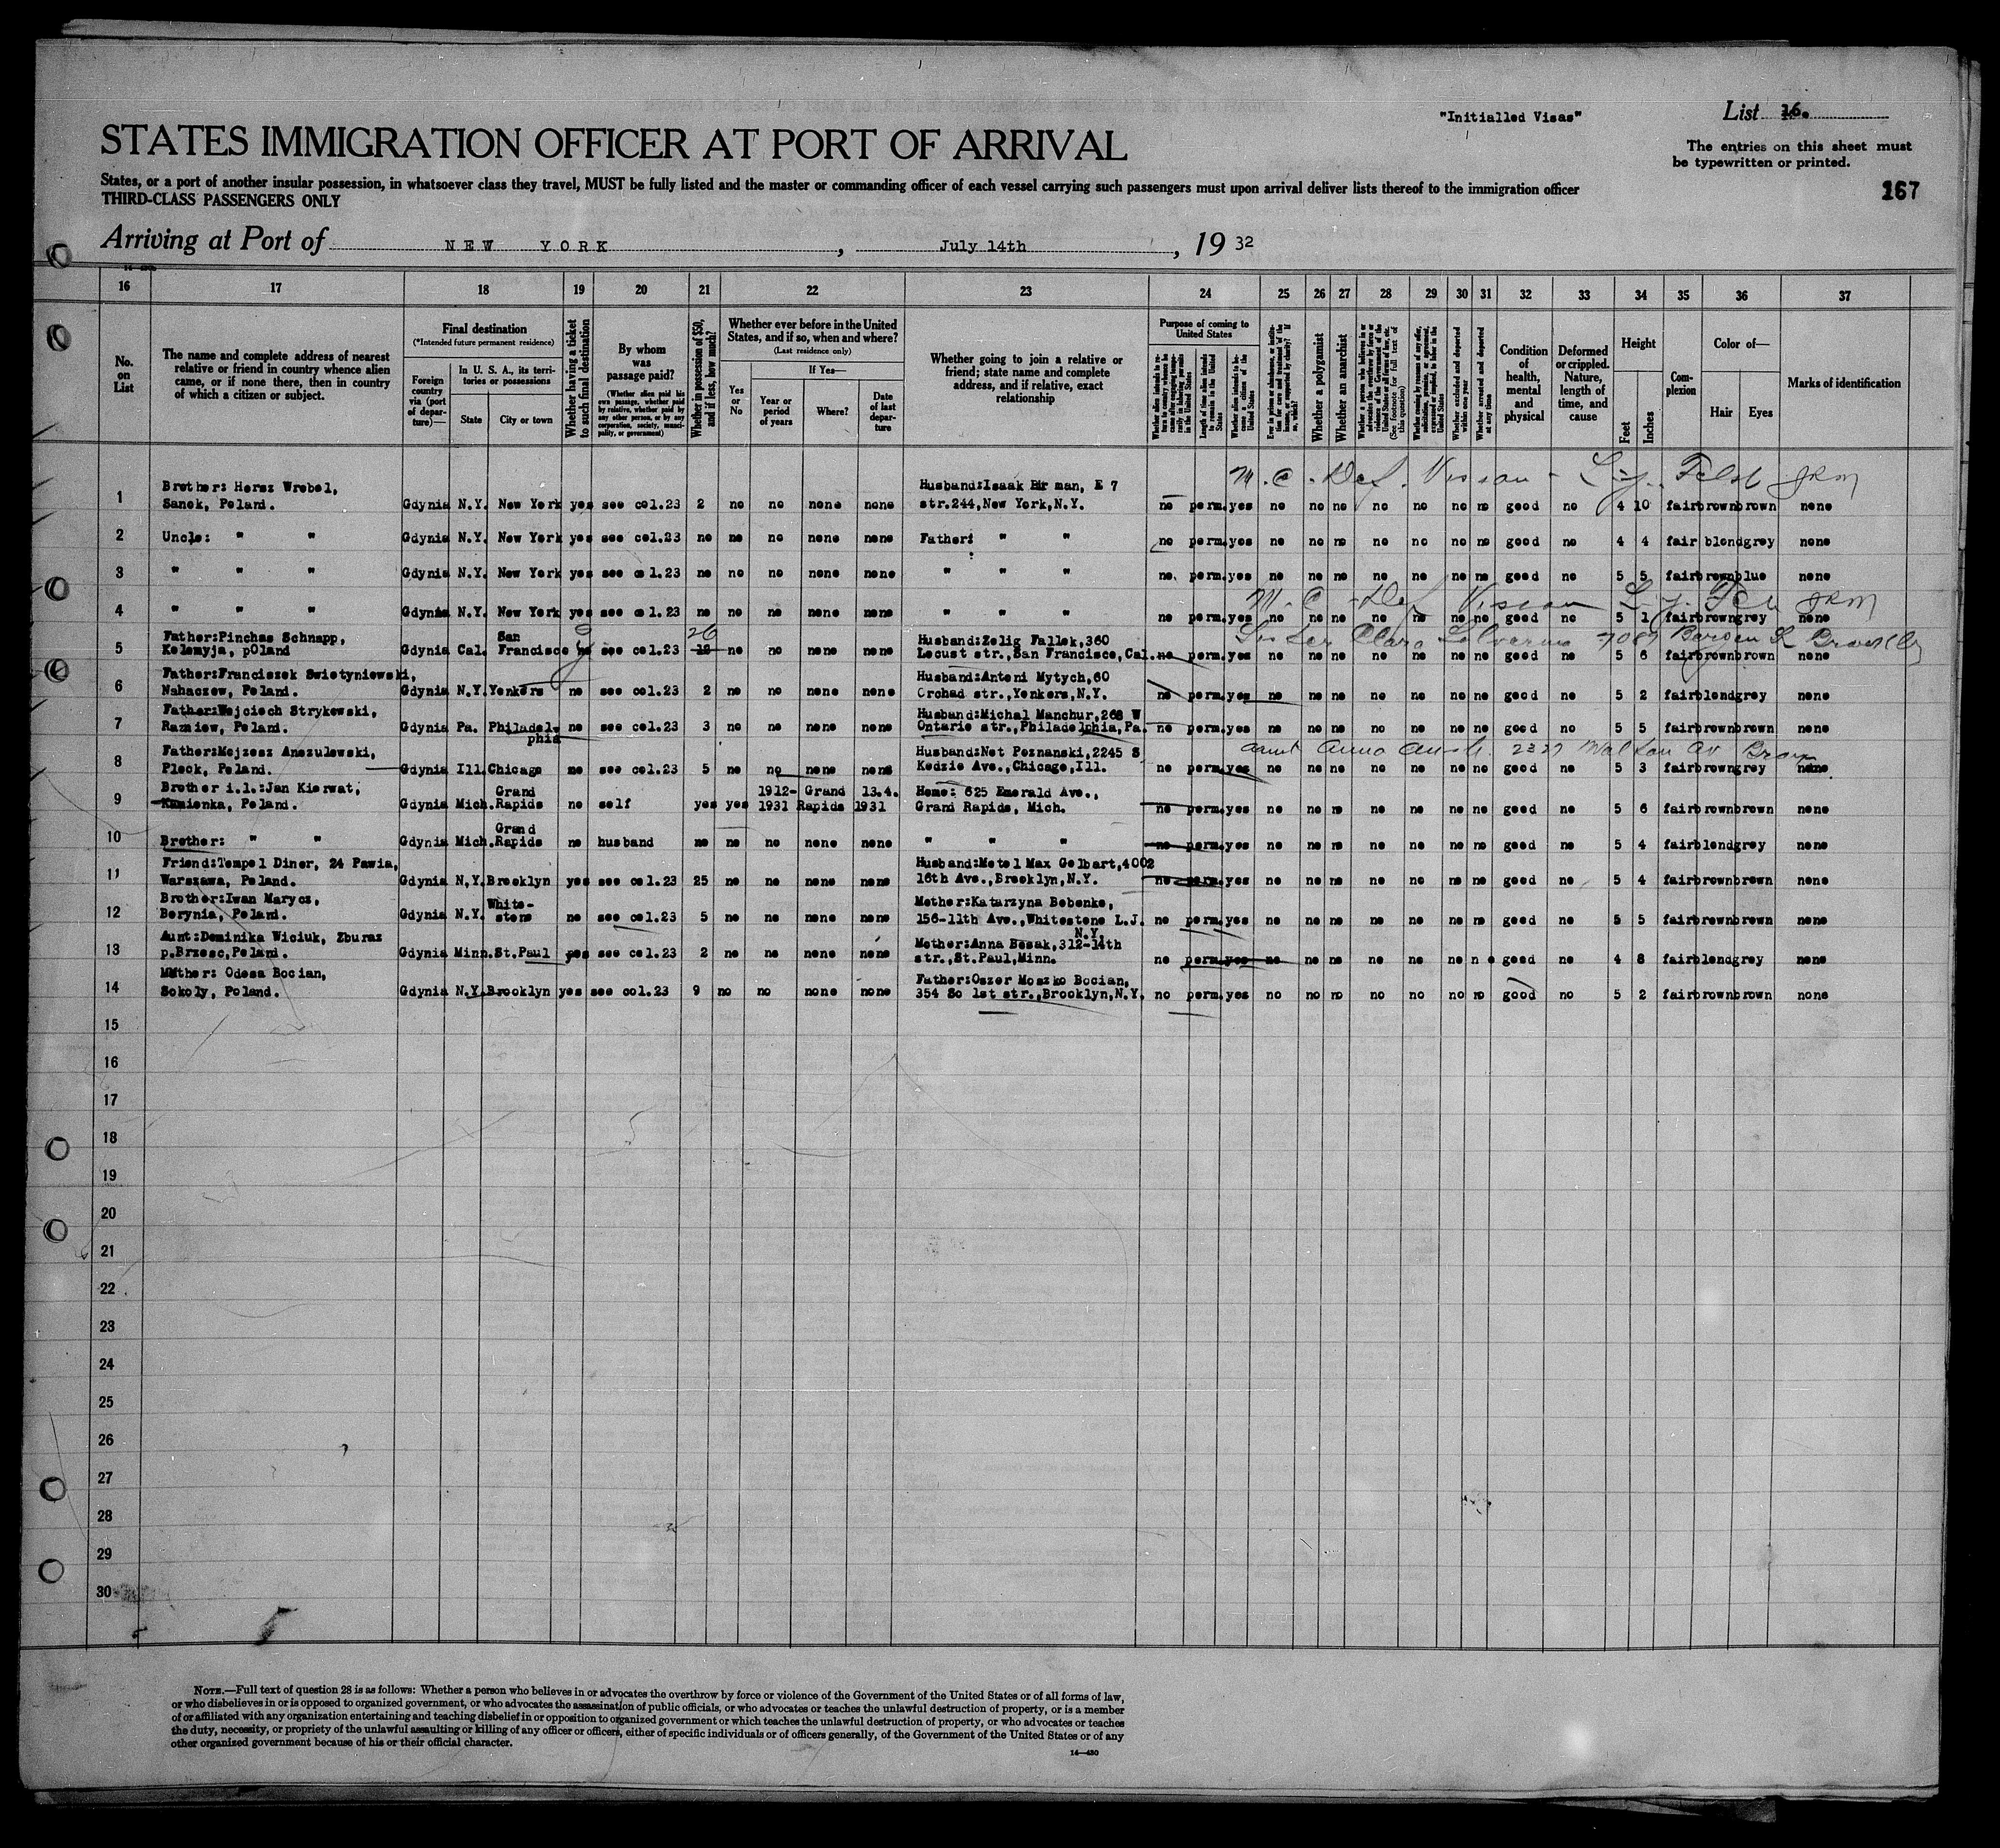 "Initialled Visas"
List 16.
STATES IMMIGRATION OFFICER AT PORT OF ARRIVAL
The entries on this sheet must
be typewritten or printed.
States, or a port of another insular possession, in whatsoever class they travel, MUST be fully listed and the master or commanding officer of each vessel carrying such passengers must upon arrival deliver lists thereof to the immigration officer
THIRD-CLASS PASSENGERS ONLY
167
Arriving at Port of NEW YORK, July 14th, 19 32
16 17 18 19 20 21 22 23 24 25 26 27 28 29 30 31 32 33 34 35 36 37
No. on List
The name and complete address of nearest relative or friend in country whence alien came, or if none there, then in country of which a citizen or subject.
Final destination
(*Intended future permanent residence)
Foreign country via (port of departure)—
In U. S. A., its territories or possessions
State
City or town
Whether having a ticket to such final destination
By whom was passage paid?
(Whether alien paid his own passage, whether paid by relative, whether paid by any other person, or by any corporation, society, municipality, or government)
Whether in possession of $50, and if less, how much?
Whether ever before in the United States, and if so, when and where?
(Last residence only)
Yes or No
If Yes—
Year or period of years
Where?
Date of last departure
Whether going to join a relative or friend; state name and complete address, and if relative, exact relationship
Purpose of coming to United States
Length of time alien intends to remain in the United States
Whether alien intends to become a citizen of the United States
Whether a polygamist
Whether an anarchist
(See footnote for full text of this question)
Whether excluded and deported within one year
Whether arrested and deported at any time
Condition of health, mental and physical
Deformed or crippled. Nature, length of time, and cause
Height
Feet
Inches
Complexion
Color of—
Hair
Eyes
Marks of identification
Brother: Hersz Wrobel, Husband:Isaak Bir man, E 7
1 Sanok, Poland. Gdynia N.Y. New York yes see col.23 2 no no none none str.244,New York,N.Y. no perm.yes no no no no no no no good no 4 10 fair brown brown none
2 Uncle: " " Gdynia N.Y. New York yes see col.23 no no no none none Father: " " no perm.yes no no no no no no no good no 4 4 fair blond grey none
3 " " " Gdynia N.Y. New York yes see col.23 no no no none none " " " no. perm.yes no no no no no no no good no 5 5 fair brown blue none
4 " " " Gdynia N.Y. New York yes see col.23 no no no none none " " " no perm.yes no no no no no no no good no 5 1 fair brown grey none
Father:Pinchas Schnapp, San 26 Husband:Zelig Fallek,360
5 Kolomyja, pOland Gdynia Cal. Francisco no see col.23 18 no no none none Locust str.,San Francisco,Cal. no perm.yes no no no no no no no good no 5 6 fair brown brown none
Father:Franciszek Swietyniowski, Husband:Anteni Mytych,60
6 Nahaczow, Poland. Gdynia N.Y. Yonkers no see col.23 2 no no none none Orchad str.,Yonkers,N.Y. no perm.yes no no no no no no no good no 5 2 fair blond grey none
Father:Wojciech Strykowski, Husband:Michal Manchur,268 W
7 Razniow, Poland. Gdynia Pa. Philadelphia no see col.23 3 no no none none Ontario str.,Philadelphia,Pa. no perm.yes no no no no no no no good no 5 5 fair brown brown none
Father:Mojzesz Anszulewski, Husband:Net Poznanski,2245 S
8 Plock, Poland. Gdynia Ill. Chicago no see col.23 5 no no none none Kedzie Ave.,Chicago,Ill. no perm.yes no no no no no no no good no 5 3 fair brown grey none
Brother i.l.:Jan Kierwat, Grand 1912- Grand 13.4. Home: 625 Emerald Ave.,
9 Kamionka, Poland. Gdynia Mich. Rapids no self yes yes 1931 Rapids 1931 Grand Rapids, Mich. no perm.yes no no no no no no no good no 5 6 fair brown brown none
10 Brother: " " Gdynia Mich. Grand Rapids no husband no no no none none " " " no perm.yes no no no no no no no good no 5 4 fair blond grey none
Friend:Tempel Diner, 24 Pawia, Husband:Motel Max Gelbart,4002
11 Warszawa, Poland. Gdynia N.Y. Brooklyn yes see col.23 25 no no none none 16th Ave.,Brooklyn,N.Y. no perm.yes no no no no no no no good no 5 4 fair brown brown none
Brother:Iwan Marycz, White- Mother:Katarzyna Bobenko,
12 Berynia, Poland. Gdynia N.Y. stone no see col.23 5 no no none none 156-11th Ave.,Whitestone L.J. N.Y. no perm.yes no no no no no no no good no 5 5 fair brown brown none
Aunt:Dominika Wiciuk, Zburaz Mother:Anna Bosak,312-14th
13 p.Brzesc,Poland. Gdynia Minn. St.Paul yes see col.23 2 no no none none str.,St.Paul,Minn. no perm.yes no no no no no no n o good no 4 8 fair blond grey none
Mother: Odesa Bocian, Father:Oszer Moszko Bocian,
14 Sokoly, Poland. Gdynia N.Y. Brooklyn yes see col.23 9 no no none none 354 So 1st str.,Brooklyn,N.Y. no perm.yes no no no no no no no good no 5 2 fair brown brown none
15
16
17
18
19
20
21
22
23
24
25
26
27
28
29
30
NOTE.—Full text of question 28 is as follows: Whether a person who believes in or advocates the overthrow by force or violence of the Government of the United States or of all forms of law,
or who disbelieves in or is opposed to organized government, or who advocates the assassination of public officials, or who advocates or teaches the unlawful destruction of property, or is a member
of or affiliated with any organization entertaining and teaching disbelief in or opposition to organized government or which teaches the unlawful destruction of property, or who advocates or teaches
the duty, necessity, or propriety of the unlawful assaulting or killing of any officer or officers, either of specific individuals or of officers generally, of the Government of the United States or of any
other organized government because of his or their official character.
14—430